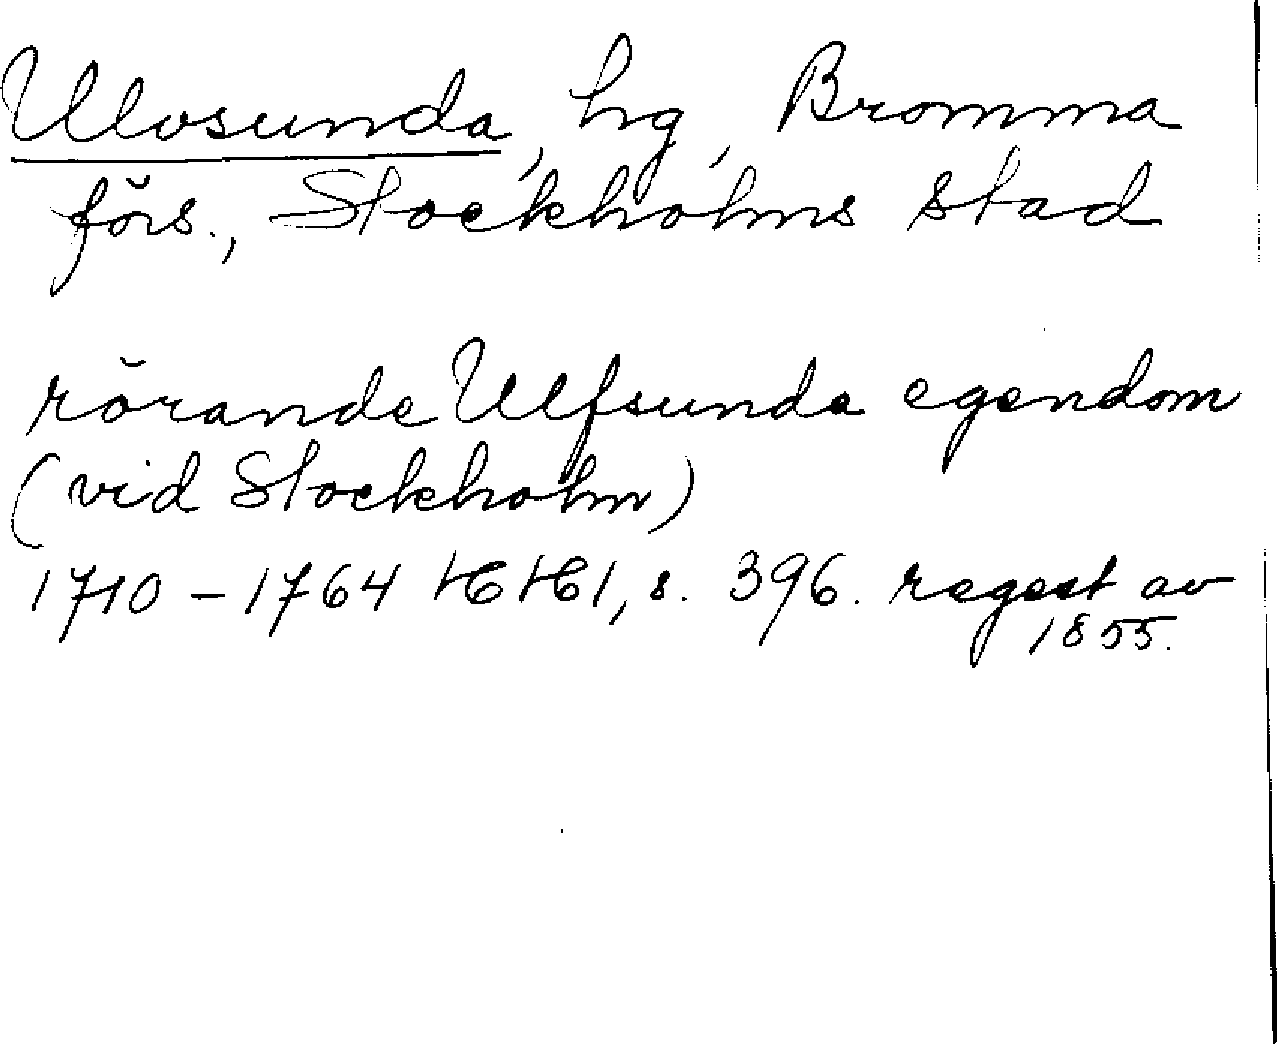 Ulvsunda, hg, Bromma
förs., Stockholms stad
rörande Ulfsunda egendom
(vid Stockholm)
1710 – 1764 HH1, s. 396. regest av
1855.